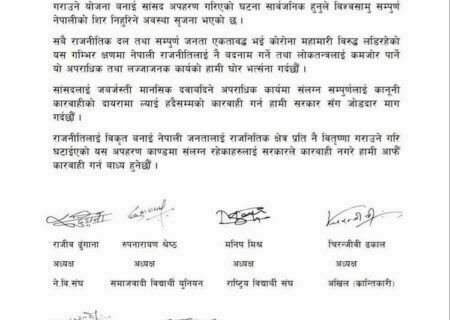 गराउने योजना बनाई सांसद अपहरण गरिएको घटना सार्वजनिक हुनुले विश्वसामु सम्पुर्ण
नेपालीको शिर निहुरिने अवस्था सृजना भएको छ ।
सबै राजनीतिक दल तथा सम्पुर्ण जनता एकताबद्ध भई कोरोना महामारी विरुद्ध लडिरहेको
यस गम्भिर क्षणमा नेपाली राजनीतिलाई नै बदनाम गर्ने तथा लोकतन्त्रलाई कमजोर पार्ने
यो अपराधिक तथा लज्जाजनक कार्यको हामी घोर भर्त्सना गर्दछौं ।
सांसदलाई जबर्जस्ती मानसिक दवावदिने अपराधिक कार्यमा संलग्न सम्पुर्णलाई कानूनी
कारवाहीको दायरामा ल्याई हदैसम्मको कारवाही गर्न हामी सरकार सँग जोडदार माग
गर्दछौं ।
राजनीतिलाई विकृत बनाई नेपाली जनतालाई राजनितिक क्षेत्र प्रति नै वितृष्णा गराउने गरि
घटाईएको यस अपहरण काण्डमा संलग्न रहेकाहरुलाई सरकारले कारवाही नगरे हामी आफैँ
कारवाही गर्न बाध्य हुनेछौं ।
राजीव ढुंगाना रुपनारायण श्रेष्ठ मनिष मिश्र चिरन्जीवी ढकाल
अध्यक्ष अध्यक्ष अध्यक्ष अध्यक्ष
ने.वि.संघ समाजवादी विद्यार्थी युनियन राष्ट्रिय विद्यार्थी संघ अखिल (क्रान्तिकारी)